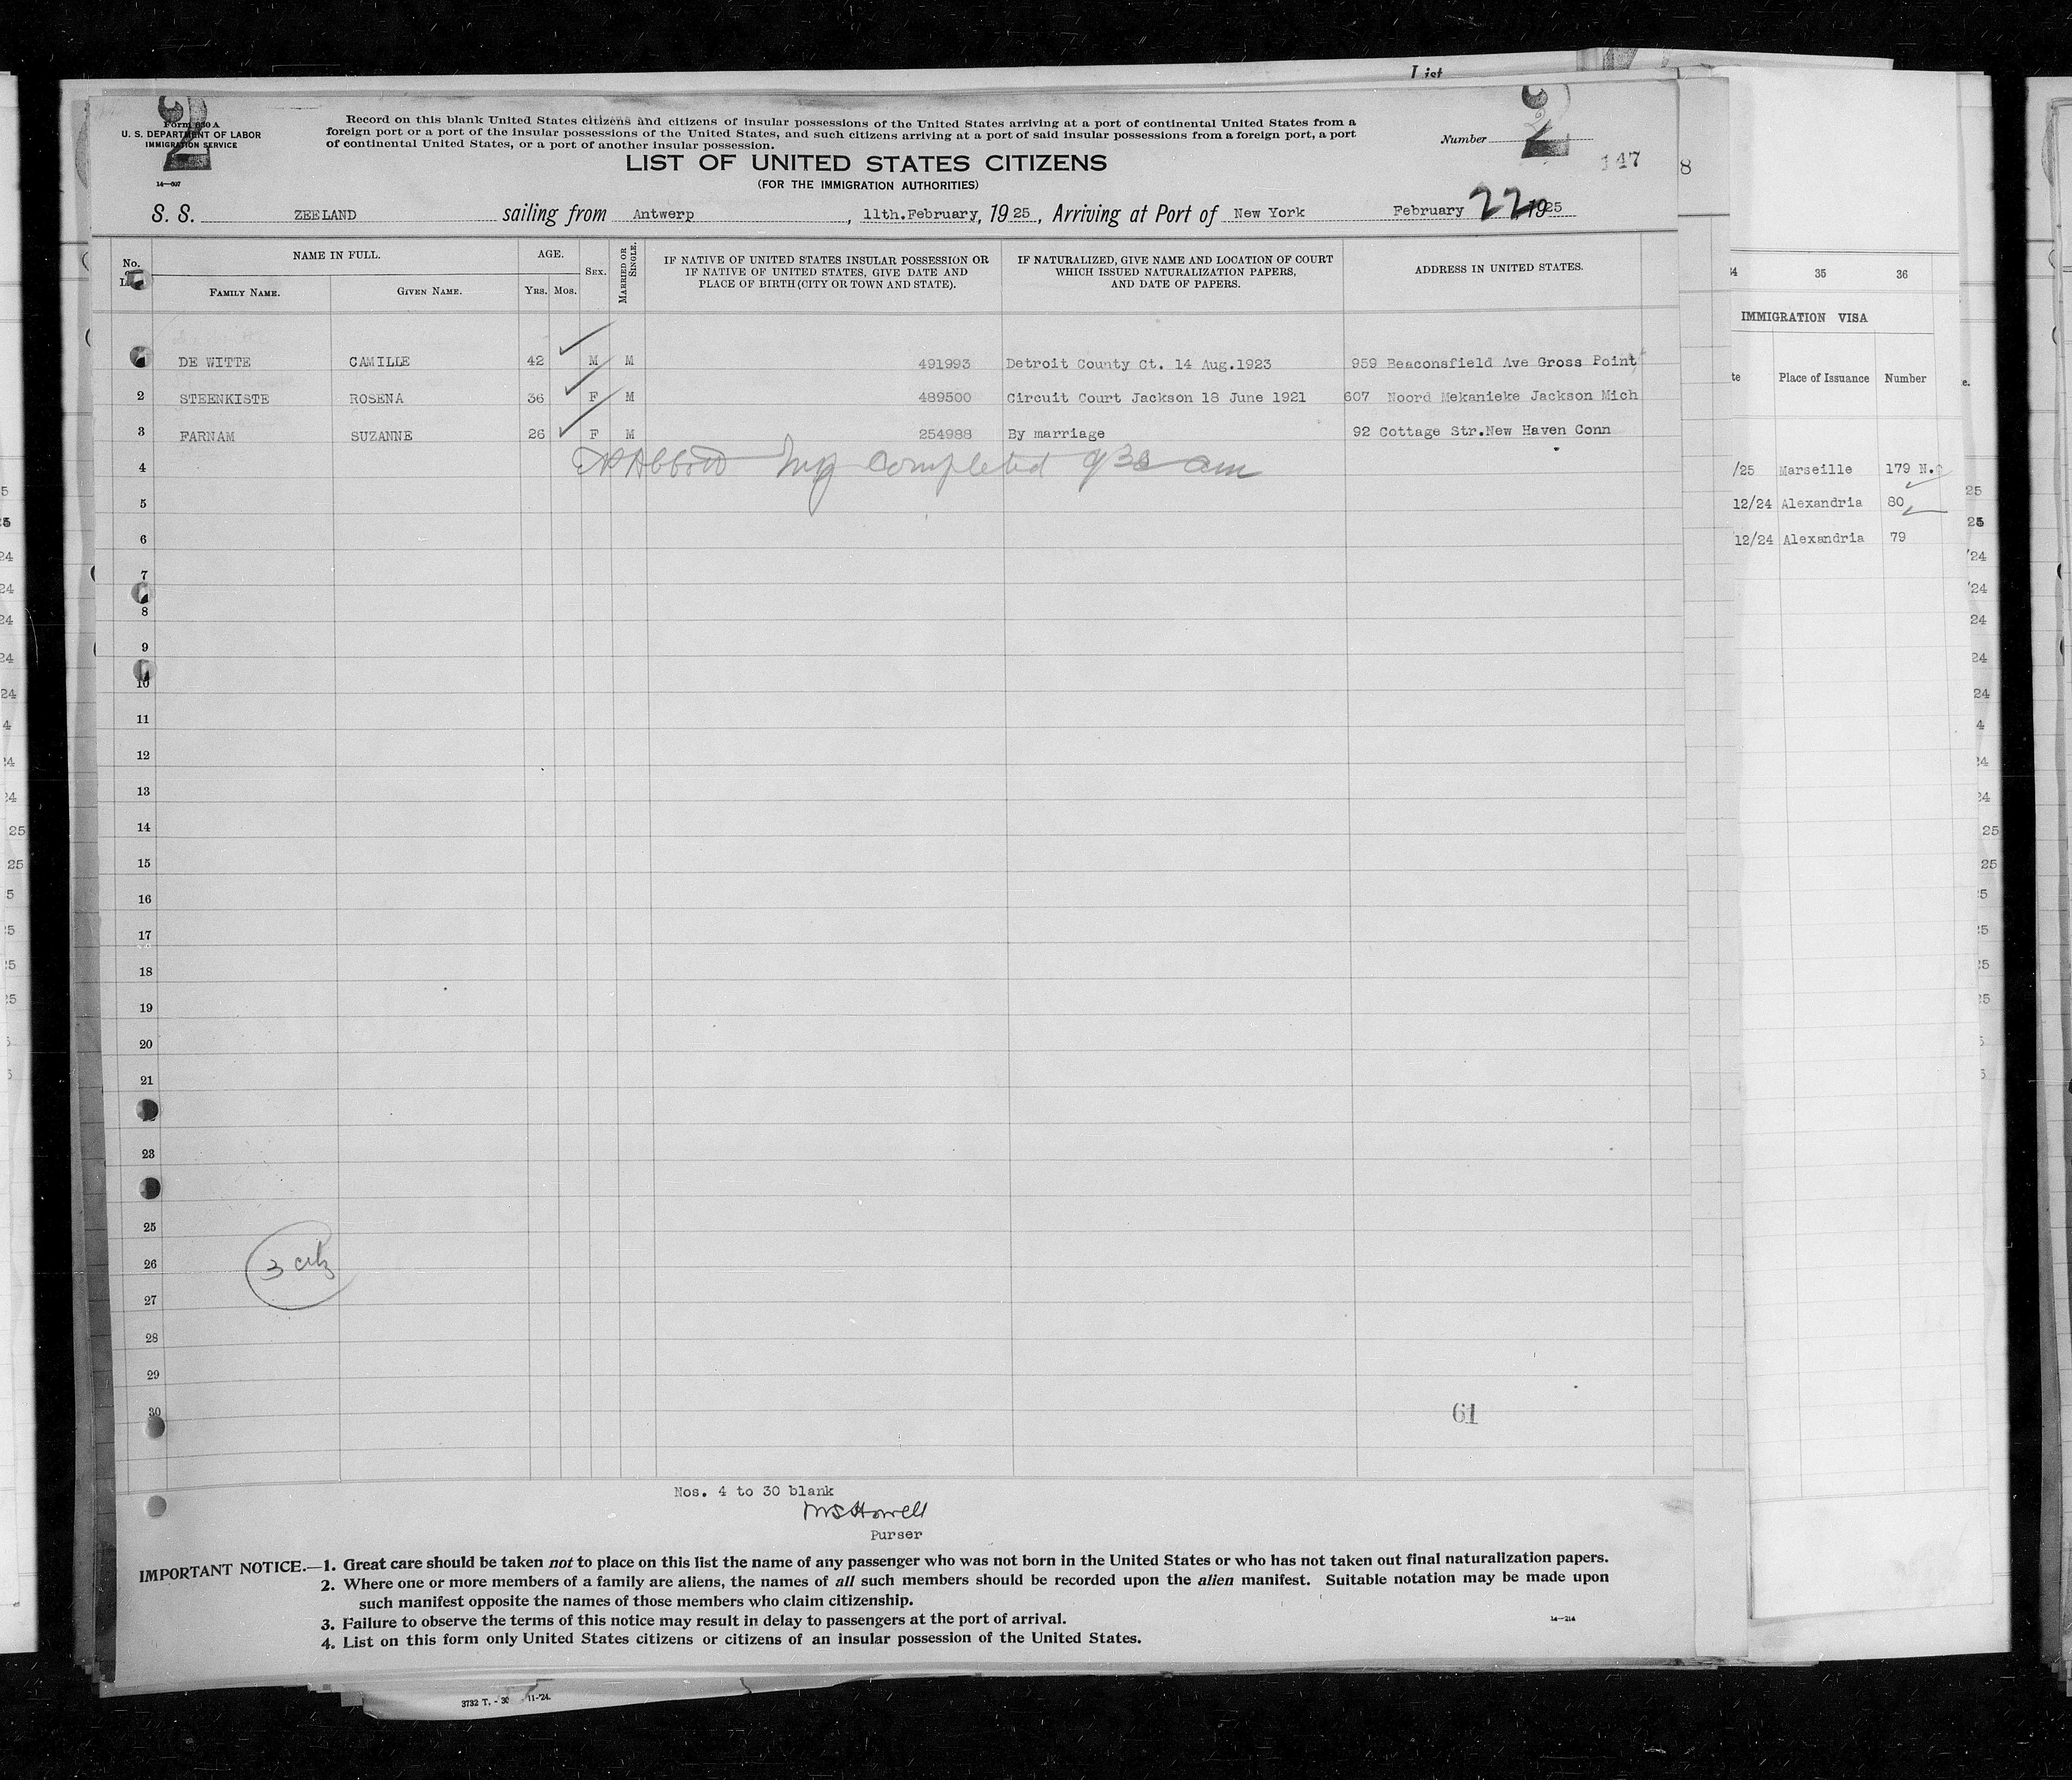 List
Form 630 A
U. S. DEPARTMENT OF LABOR
IMMIGRATION SERVICE
14—607
2
Record on this blank United States citizens and citizens of insular possessions of the United States arriving at a port of continental United States from a
foreign port or a port of the insular possessions of the United States, and such citizens arriving at a port of said insular possessions from a foreign port, a port
of continental United States, or a port of another insular possession.
LIST OF UNITED STATES CITIZENS
(FOR THE IMMIGRATION AUTHORITIES)
Number 2
147
8
S. S. ZEELAND sailing from Antwerp, 11th.February, 1925, Arriving at Port of New York February 22 1925
No. NAME IN FULL. AGE. SEX. MARRIED OR SINGLE. IF NATIVE OF UNITED STATES INSULAR POSSESSION OR IF NATIVE OF UNITED STATES, GIVE DATE AND PLACE OF BIRTH (CITY OR TOWN AND STATE). IF NATURALIZED, GIVE NAME AND LOCATION OF COURT WHICH ISSUED NATURALIZATION PAPERS, AND DATE OF PAPERS. ADDRESS IN UNITED STATES.
FAMILY NAME. GIVEN NAME. YRS. MOS.
DE WITTE CAMILLE 42 M M 491993 Detroit County Ct. 14 Aug.1923 959 Beaconsfield Ave Gross Point
2 STEENKISTE ROSENA 36 F M 489500 Circuit Court Jackson 18 June 1921 607 Noord Mekanieke Jackson Mich
3 FARNAM SUZANNE 26 F M 254988 By marriage 92 Cottage Str.New Haven Conn
4 Abbott completed 930 am
5
6
7
8
9
10
11
12
13
14
15
16
17
18
19
20
21
23
25
26
3 citz
27
28
29
30
61
Nos. 4 to 30 blank
Purser
IMPORTANT NOTICE.—1. Great care should be taken not to place on this list the name of any passenger who was not born in the United States or who has not taken out final naturalization papers.
2. Where one or more members of a family are aliens, the names of all such members should be recorded upon the alien manifest. Suitable notation may be made upon
such manifest opposite the names of those members who claim citizenship.
3. Failure to observe the terms of this notice may result in delay to passengers at the port of arrival.
4. List on this form only United States citizens or citizens of an insular possession of the United States.
14—214
3732 T. - 30 11-'24.
35 36
IMMIGRATION VISA
Place of Issuance Number
/25 Marseille 179 N.
12/24 Alexandria 80
12/24 Alexandria 79